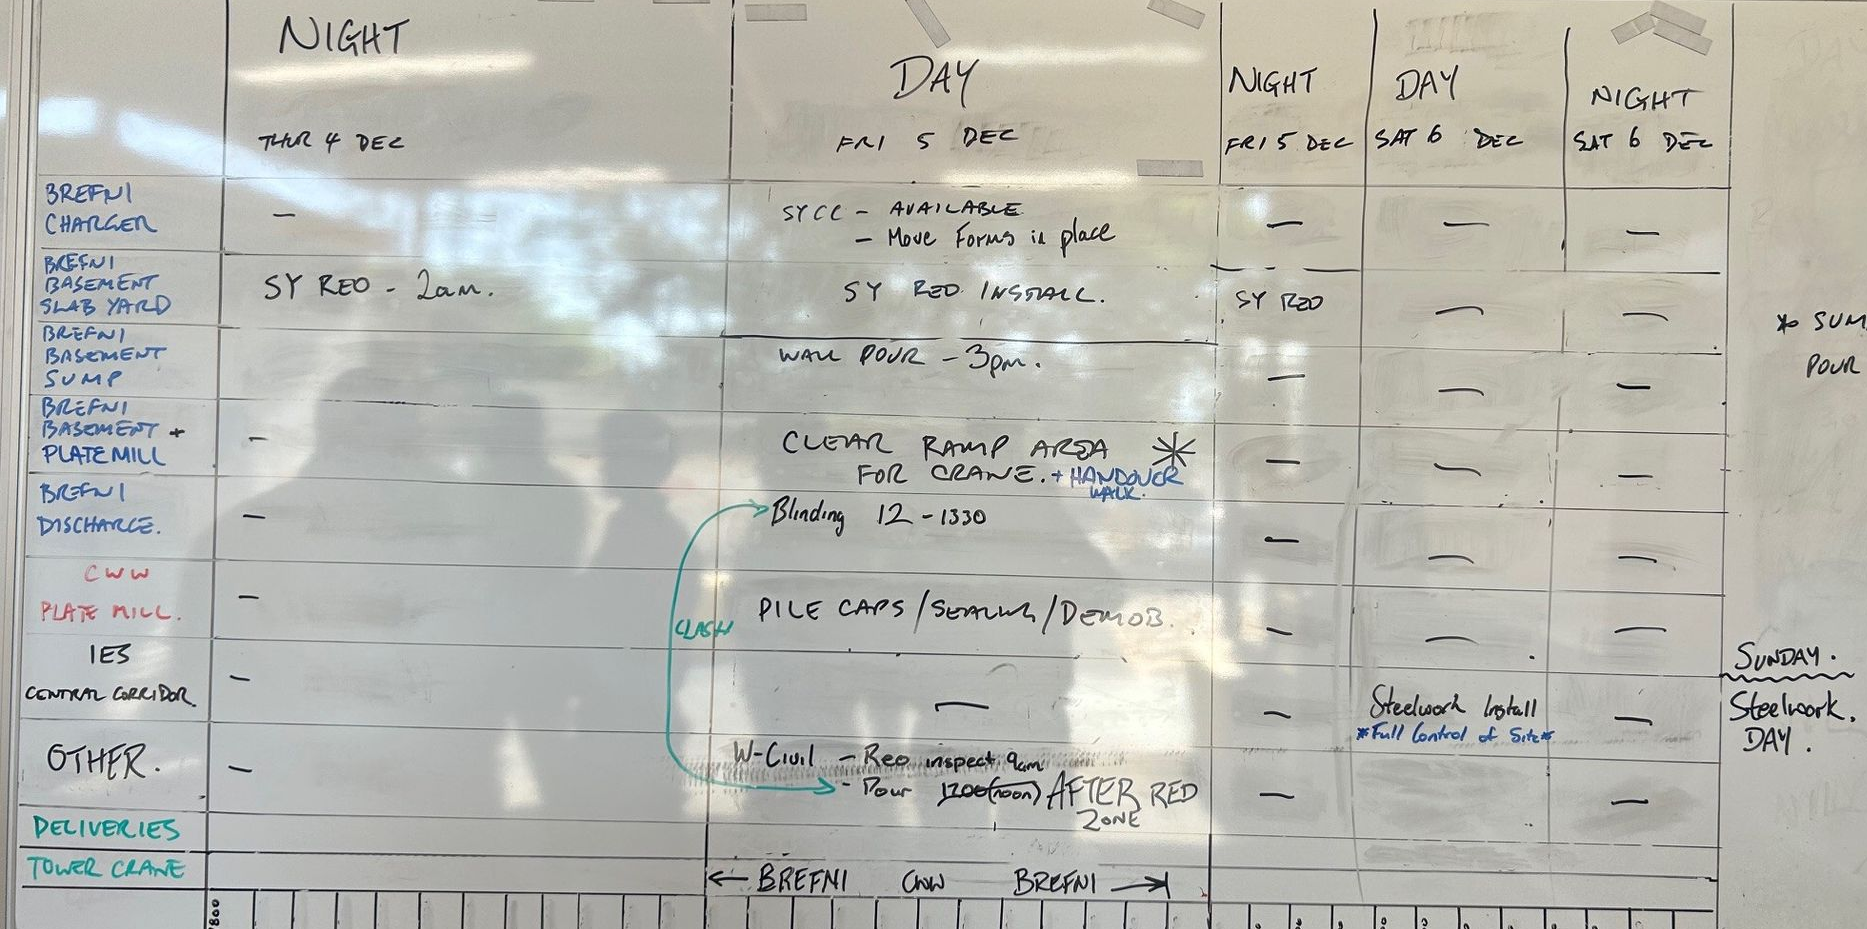 NIGHT
DAY
NIGHT
DAY
NIGHT
THUR 4 DEC
FRI 5 DEC
FRI 5 DEC
SAT 6 DEC
SAT 6 DEC
BREFNI
CHARGER
-
SYCC - AVAILABLE
- Move Forms in place
-
-
-
BREFNI
BASEMENT
SLAB YARD
SY REO - 2am.
SY REO INSTALL.
SY REO
-
-
BREFNI
BASEMENT
SUMP
WALL POUR - 3pm.
-
-
-
BREFNI
BASEMENT +
PLATEMILL
-
CLEAR RAMP AREA *
FOR CRANE. + HANDOVER
WALK.
-
-
-
BREFNI
DISCHARGE.
-
Blinding 12 - 1330
-
-
-
CWW
PLATE MILL.
-
CLASH
PILE CAPS / SEALING / DEMOB.
-
-
-
IES
CENTRAL CORRIDOR
-
-
-
Steelwork Install
*Full Control of Site*
-
OTHER.
-
W-Civil - Reo inspect 9am
- Pour 1200(noon) AFTER RED
ZONE
-
-
DELIVERIES
TOWER CRANE
← BREFNI CWW BREFNI →
* SUM
POUR
SUNDAY.
Steelwork.
DAY.